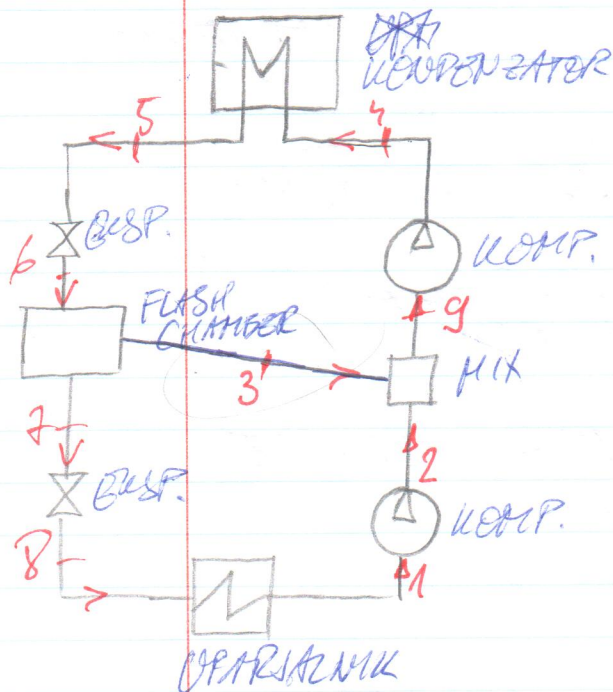 KONDENZATOR
5
4
EKSP.
6
KOMP.
FLASH
CHAMBER
9
3
MIX
7
2
EKSP.
KOMP.
8
1
UPARJALNIK